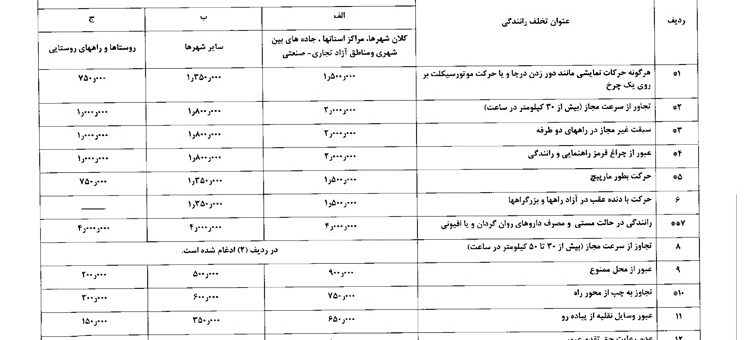 ردیف عنوان تخلف رانندگی الف ب ج
کلان شهرها، مراکز استانها ، جاده های بین شهری ومناطق آزاد تجاری- صنعتی سایر شهرها روستاها و راههای روستایی
*۱ هرگونه حرکات نمایشی مانند دور زدن درجا و یا حرکت موتورسیکلت بر روی یک چرخ ۱ر۵۰۰ر۰۰۰ ۱ر۳۵۰ر۰۰۰ ۷۵۰ر۰۰۰
*۲ تجاوز از سرعت مجاز (بیش از ۳۰ کیلومتر در ساعت) ۲ر۰۰۰ر۰۰۰ ۱ر۸۰۰ر۰۰۰ ۱ر۰۰۰ر۰۰۰
*۳ سبقت غیر مجاز در راههای دو طرفه ۲ر۰۰۰ر۰۰۰ ۱ر۸۰۰ر۰۰۰ ۱ر۰۰۰ر۰۰۰
*۴ عبور از چراغ قرمز راهنمایی و رانندگی ۲ر۰۰۰ر۰۰۰ ۱ر۸۰۰ر۰۰۰ ۱ر۰۰۰ر۰۰۰
*۵ حرکت بطور مارپیچ ۱ر۵۰۰ر۰۰۰ ۱ر۳۵۰ر۰۰۰ ۷۵۰ر۰۰۰
۶ حرکت با دنده عقب در آزاد راهها و بزرگراهها ۱ر۵۰۰ر۰۰۰ ۱ر۳۵۰ر۰۰۰ ——
**۷ رانندگی در حالت مستی و مصرف داروهای روان گردان و یا افیونی ۴ر۰۰۰ر۰۰۰ ۴ر۰۰۰ر۰۰۰ ۴ر۰۰۰ر۰۰۰
۸ تجاوز از سرعت مجاز (بیش از ۳۰ تا ۵۰ کیلومتر در ساعت) در ردیف (۲) ادغام شده است.
۹ عبور از محل ممنوع ۹۰۰ر۰۰۰ ۵۰۰ر۰۰۰ ۲۰۰ر۰۰۰
*۱۰ تجاوز به چپ از محور راه ۷۵۰ر۰۰۰ ۶۰۰ر۰۰۰ ۳۰۰ر۰۰۰
۱۱ عبور وسایل نقلیه از پیاده رو ۶۵۰ر۰۰۰ ۳۵۰ر۰۰۰ ۱۵۰ر۰۰۰